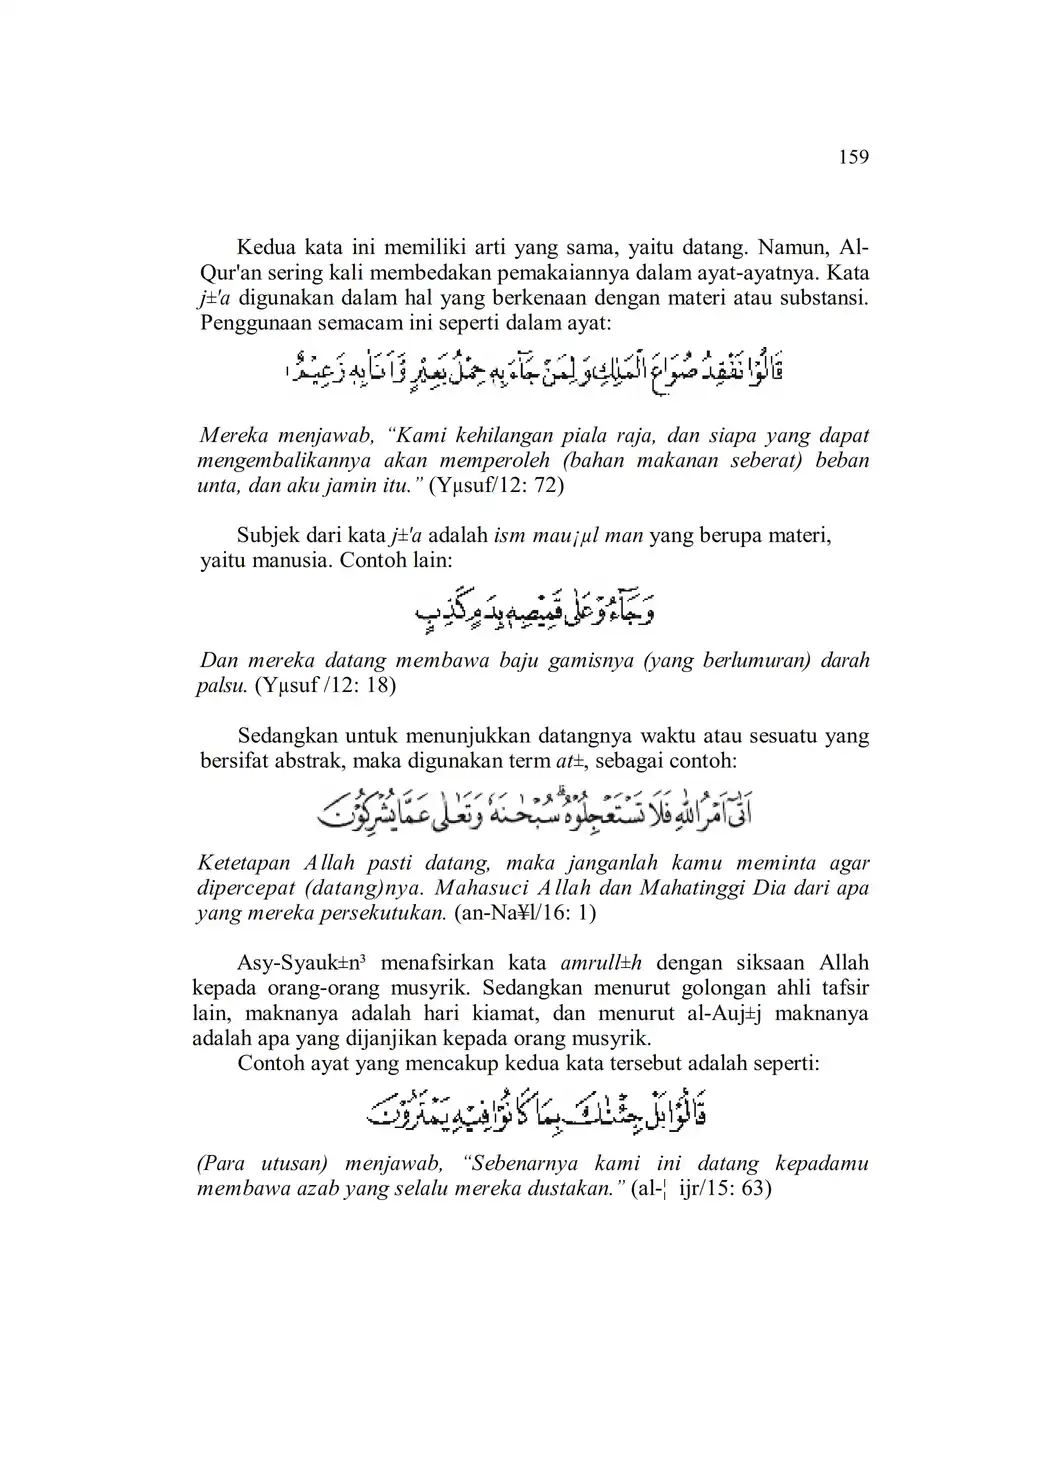 159
Kedua kata ini memiliki arti yang sama, yaitu datang. Namun, Al-
Qur'an sering kali membedakan pemakaiannya dalam ayat-ayatnya. Kata
j±'a digunakan dalam hal yang berkenaan dengan materi atau substansi.
Penggunaan semacam ini seperti dalam ayat:
قَالُوْا نَفْقِدُ صُوَاعَ الْمَلِكِ وَلِمَنْ جَاۤءَ بِهٖ حِمْلُ بَعِيْرٍ وَّاَنَا۠ بِهٖ زَعِيْمٌ
Mereka menjawab, “Kami kehilangan piala raja, dan siapa yang dapat
mengembalikannya akan memperoleh (bahan makanan seberat) beban
unta, dan aku jamin itu.” (Yµsuf/12: 72)
Subjek dari kata j±'a adalah ism mau¡µl man yang berupa materi,
yaitu manusia. Contoh lain:
وَجَاۤءُوْ عَلٰى قَمِيْصِهٖ بِدَمٍ كَذِبٍ
Dan mereka datang membawa baju gamisnya (yang berlumuran) darah
palsu. (Yµsuf /12: 18)
Sedangkan untuk menunjukkan datangnya waktu atau sesuatu yang
bersifat abstrak, maka digunakan term at±, sebagai contoh:
اَتٰىٓ اَمْرُ اللّٰهِ فَلَا تَسْتَعْجِلُوْهُ ۗسُبْحٰنَهٗ وَتَعٰلٰى عَمَّا يُشْرِكُوْنَ
Ketetapan Allah pasti datang, maka janganlah kamu meminta agar
dipercepat (datang)nya. Mahasuci Allah dan Mahatinggi Dia dari apa
yang mereka persekutukan. (an-Na¥l/16: 1)
Asy-Syauk±n³ menafsirkan kata amrull±h dengan siksaan Allah
kepada orang-orang musyrik. Sedangkan menurut golongan ahli tafsir
lain, maknanya adalah hari kiamat, dan menurut al-Auj±j maknanya
adalah apa yang dijanjikan kepada orang musyrik.
Contoh ayat yang mencakup kedua kata tersebut adalah seperti:
قَالُوْا بَلْ جِئْنٰكَ بِمَا كَانُوْا فِيْهِ يَمْتَرُوْنَ
(Para utusan) menjawab, “Sebenarnya kami ini datang kepadamu
membawa azab yang selalu mereka dustakan.” (al-¦ ijr/15: 63)